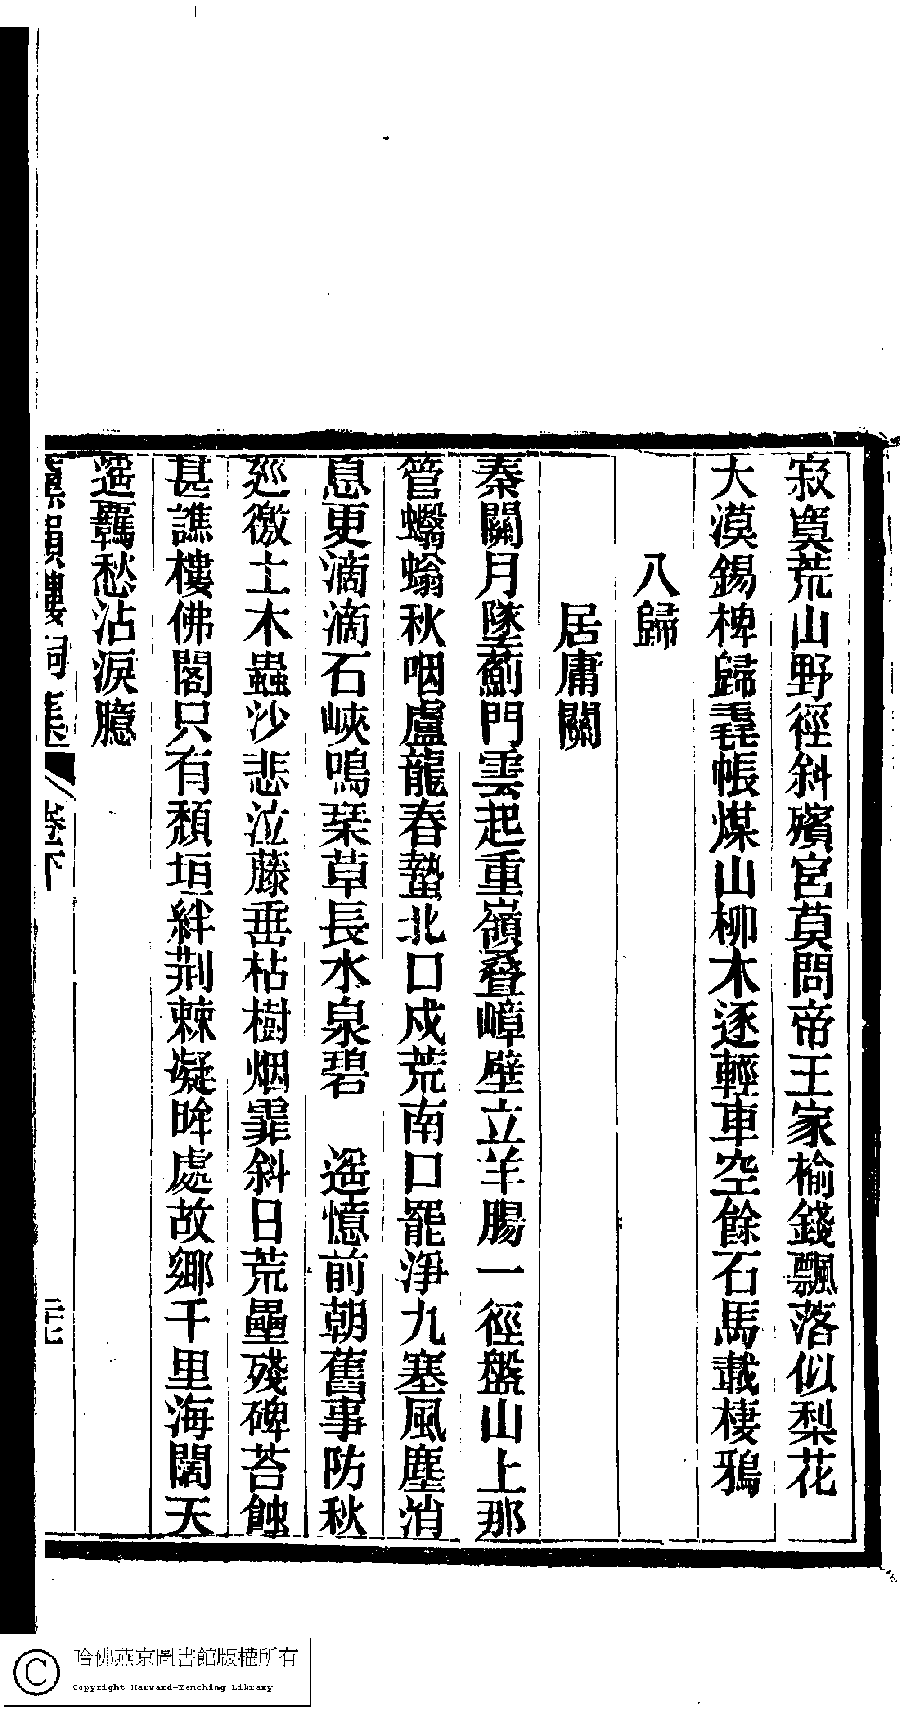 寂寞荒山野徑斜殯宮莫問帝王家榆錢飄落似梨花
大漠錫椑歸毳帳煤山柳木逐輕車空餘石馬載棲鴉
八歸
居庸關
秦關月墜薊門雲起重嶺叠嶂壁立羊腸一徑盤山上那
管蠮螉秋咽盧龍春蟄北口戍荒南口罷淨九塞風塵消
息更滴滴石峽鳴琹草長水泉碧　遥憶前朝舊事防秋
廵徼土木蟲沙悲泣藤垂枯樹烟霏斜日荒壘殘碑苔蝕
甚譙樓佛閣只有頹垣絆荆棘凝眸處故鄉千里海闊天
遥羈愁沾淚臆
詞集
卷下
哈佛燕京圖書館版權所有
Copyright Harvard-Yenching Library